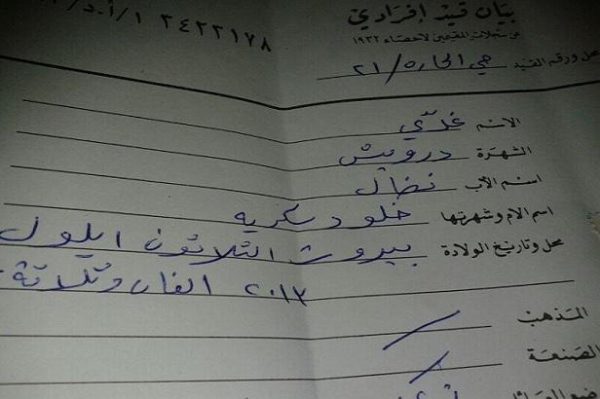 بيان قيد إفرادي
٢٤٢٢١٧٨ /١ أ.د/
عن سجلات المقيمين لاحصاء ١٩٣٢
محل ورقم القيد حي الحاره /٢١
الاسم غدي
الشهرة درويش
اسم الاب نضال
اسم الام وشهرتها خلود سكريه
محل وتاريخ الولادة بيروت الثلاثون ايلول
٢٠١٣ الفان وثلاثة
المذهب
الصنعة